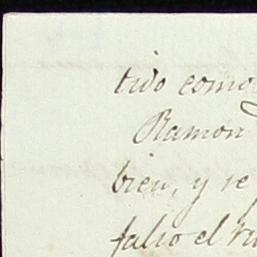 tivo como
Ramon
bien, y se
falio el